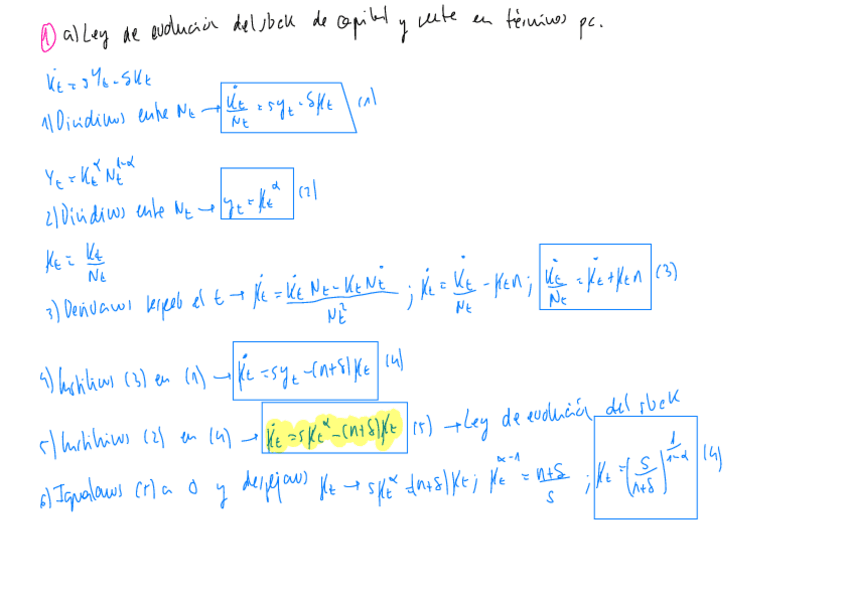 ① a) Ley de evolución del stock de capital y renta en términos pc.
K̇t = sYt - δKt
1) Dividimos entre Nt → K̇t/Nt = syt - δkt (1)
Yt = Kt^α Nt^1-α
2) Dividimos entre Nt → yt = kt^α (2)
kt = Kt/Nt
3) Derivamos respecto el t → k̇t = (K̇t Nt - Kt Ṅt)/Nt² ; k̇t = K̇t/Nt - ktn ; K̇t/Nt = k̇t + ktn (3)
4) Sustituimos (3) en (1) → k̇t = syt - (n+δ)kt (4)
5) Sustituimos (2) en (4) → k̇t = skt^α - (n+δ)kt (5) → Ley de evolución del stock
6) Igualamos (5) a 0 y despejamos kt → skt^α = (n+δ)kt ; kt^α-1 = (n+δ)/s ; kt = (s/(n+δ))^1/1-α (4)